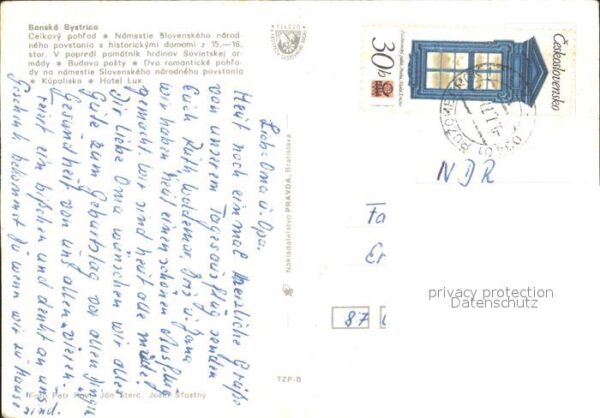 Banská Bystrica
Celkový pohľad • Námestie Slovenského národ-
ného povstania s historickými domami z 15.—16.
stor. V popredí pamätník hrdinov Sovietskej ar-
mády • Budova pošty • Dva romantické pohľa-
dy na námestie Slovenského národného povstania
• Kúpalisko • Hotel Lux
Lieb. Oma u. Opa.
Heut noch ein mal herzliche Grüße
von unserem Tagesausflug senden
Euch Ruth Woldemar, u. Jana
wir haben heut einen schönen Ausflug
gemacht. Wir sind heut alle müde!
Dir liebe Oma wünschen wir alles
Gute zum Geburtstag vor allen Dingen
Gesundheit von uns allen vieren.
Feiert ein bißchen und denkt an uns
Geschenk bekommst Du wenn wir zu Hause
Foto: Petr Ján Šterc, Jozef Šťastný
Nakladateľstvo PRAVDA, Bratislava
TZP-B
Československo
30h
RUŽOMBEROK
034 01
NDR
Fa
Er
87
privacy protection
Datenschutz